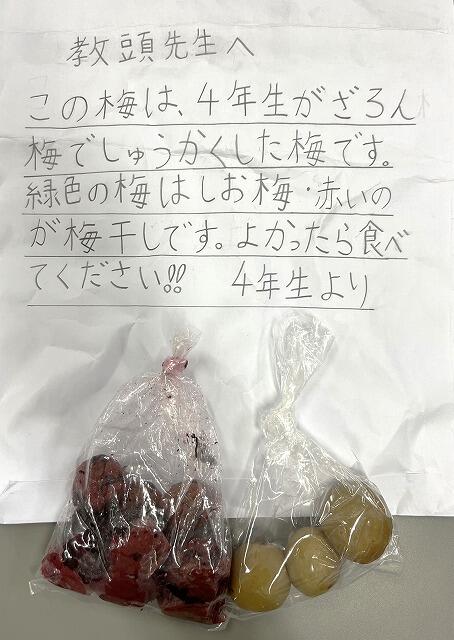 教頭先生へ
この梅は、4年生がざろん
梅でしゅうかくした梅です。
緑色の梅はしお梅・赤いの
が梅干しです。よかったら食べ
てください!! 4年生より